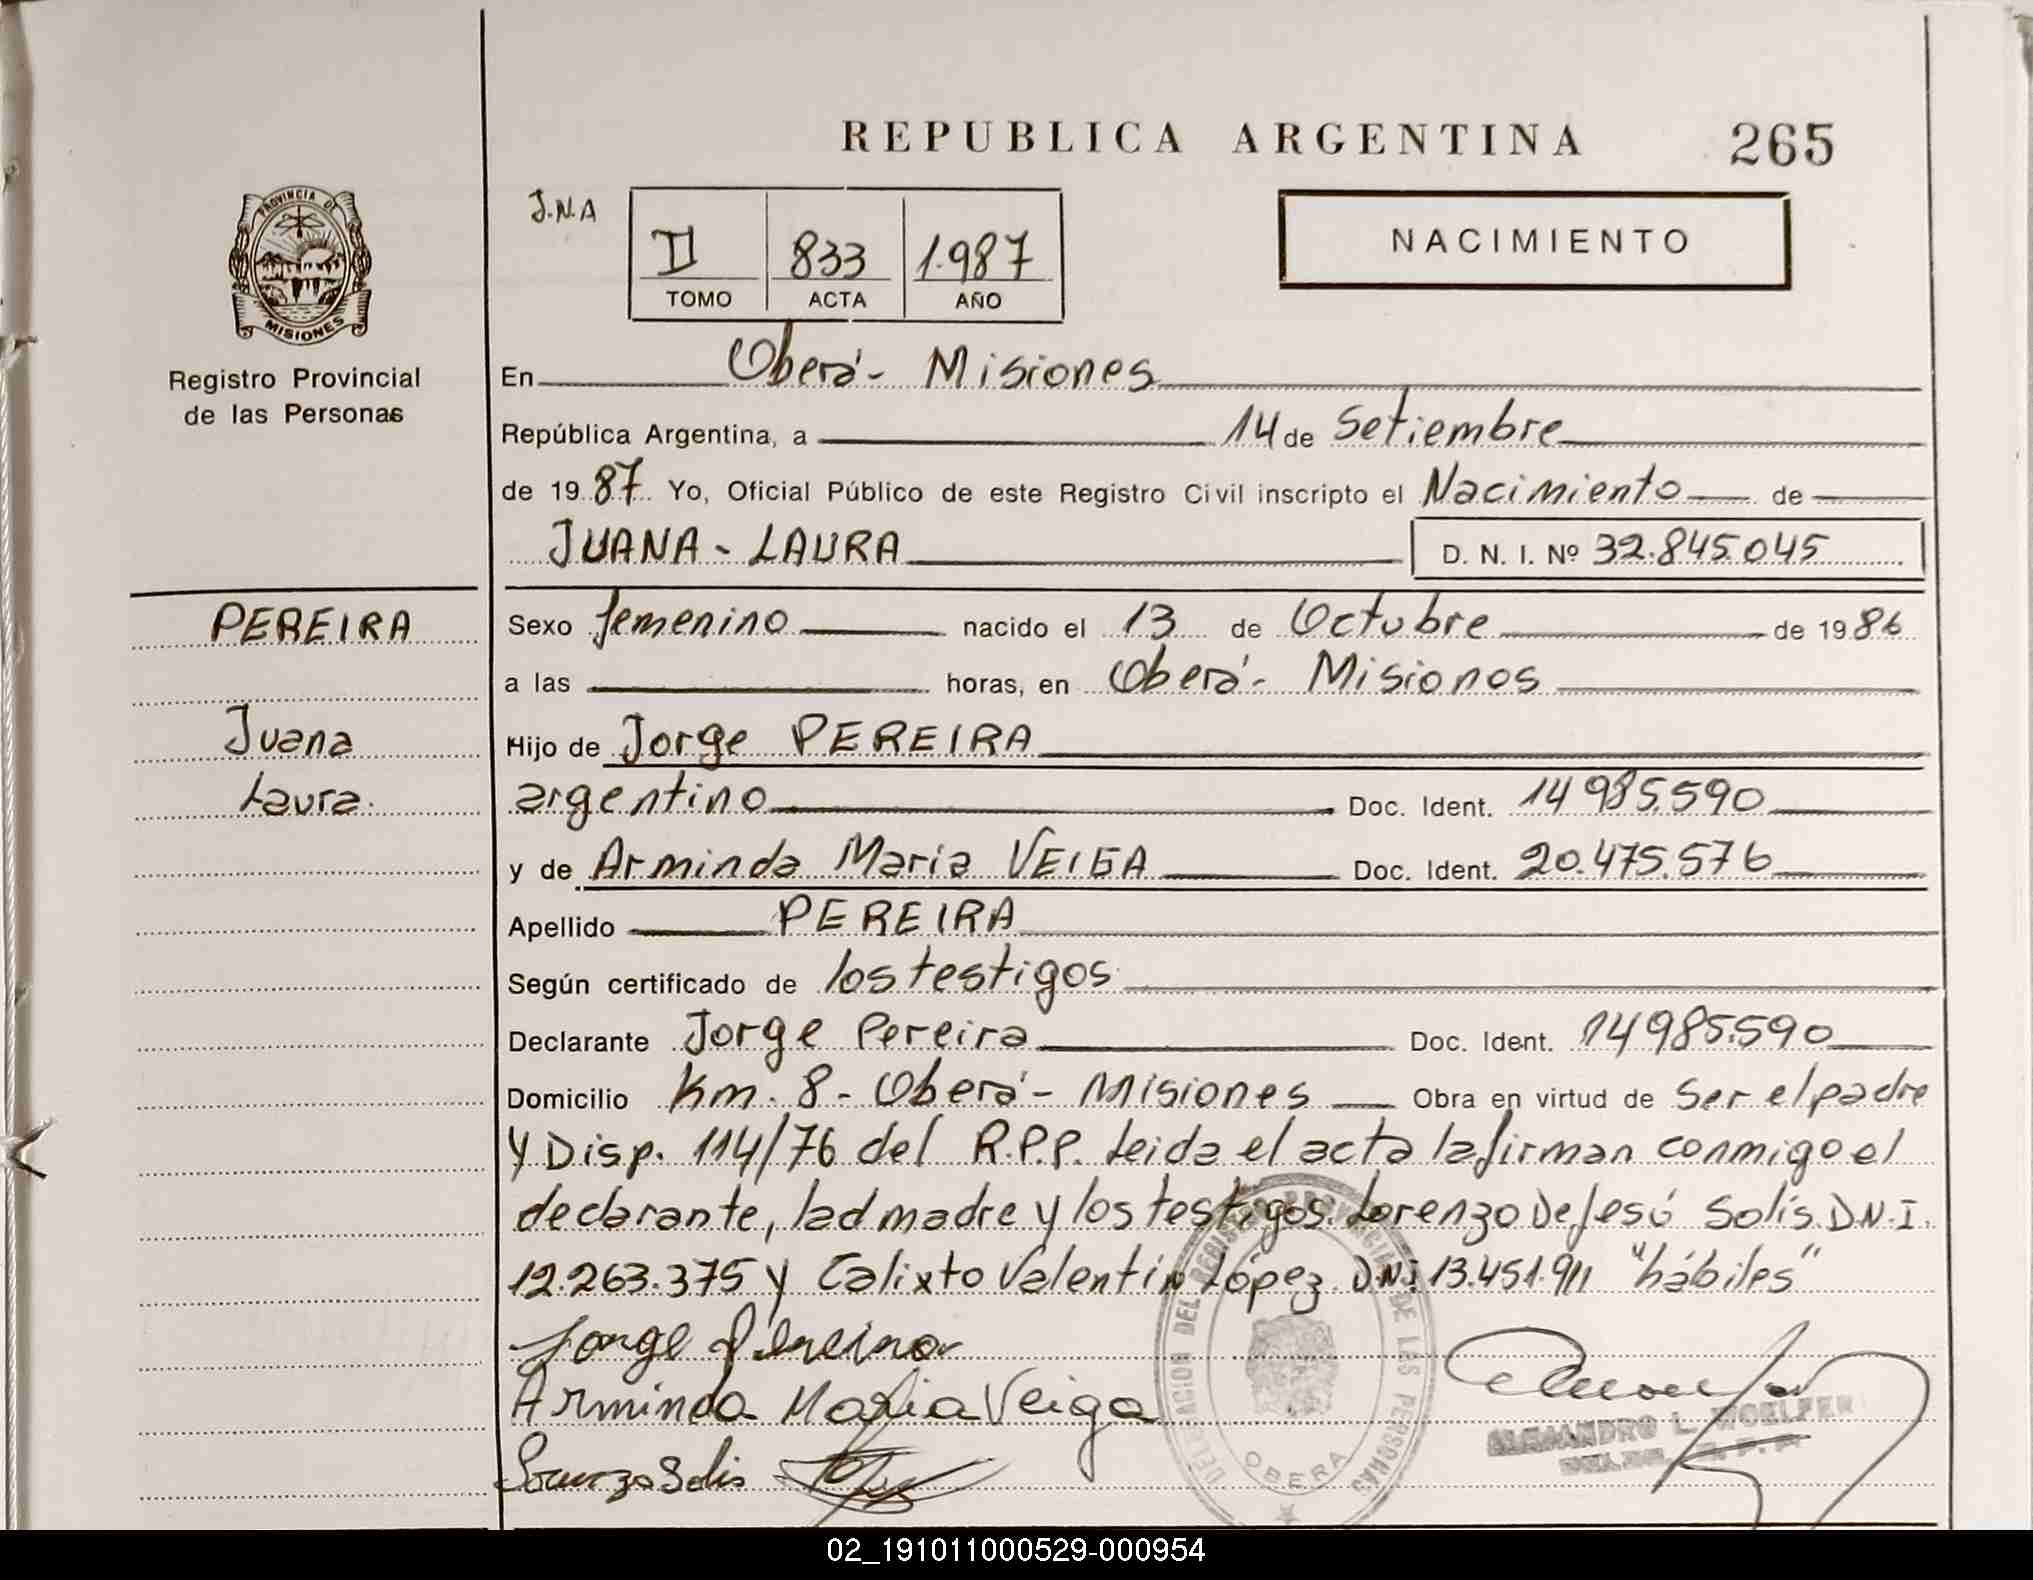 REPUBLICA ARGENTINA 265
PROVINCIA DE
MISIONES
Registro Provincial
de las Personas
J.N.A
II 833 1.987
TOMO ACTA AÑO
NACIMIENTO
En Oberá - Misiones
República Argentina, a 14 de Setiembre
de 19 87 Yo, Oficial Público de este Registro Civil inscripto el Nacimiento de
JUANA - LAURA D. N. I. Nº 32.845.045
PEREIRA
Juana
Laura.
Sexo femenino nacido el 13 de Octubre de 19 86
a las horas, en Oberá - Misiones
Hijo de Jorge PEREIRA
argentino Doc. Ident. 14.985.590
y de Arminda Maria VEIGA Doc. Ident. 20.475.576
Apellido PEREIRA
Según certificado de los testigos
Declarante Jorge Pereira Doc. Ident. 14985.590
Domicilio Km. 8 - Oberá - Misiones Obra en virtud de Ser el padre
y Disp. 114/76 del R.P.P. Leida el acta la firman conmigo el
declarante, lad madre y los testigos. Lorenzo De Jesú Solis D.N.I.
12.263.375 y Calixto Valentín López D.N.I 13.451.911 "hábiles"
Jorge Pereira
Arminda Maria Veiga
Lorenzo Solis
DELEGACION DEL REGISTRO PROVINCIAL DE LAS PERSONAS
OBERA
ALEJANDRO L. WOELFER
02_191011000529-000954